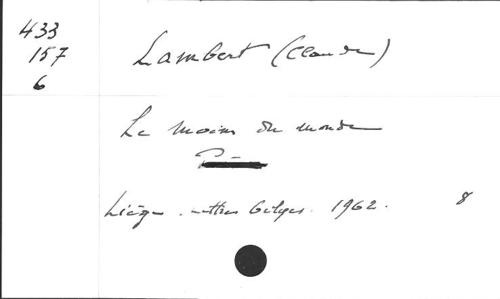 433
157
6
Lambert (Claude)
Le moins du monde
Liège. Lettres belges. 1962. 8